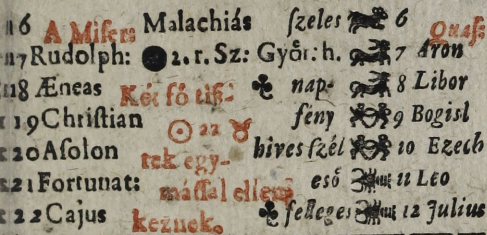 16 A Miser: Malachiás szeles 6 Quas:
17 Rudolph: ●2. r. Sz: Györ: h. 7 Aron
18 Æneas Két fő tiß: ♣ nap- 8 Libor
19 Christian ☉ 22 ♉ fény 9 Bogisl
20 Asolon tek egy- hives szél 10 Ezech
21 Fortunat: mással ellenᵹ eső 11 Leo
22 Cajus keznek. ♣ felleges 12 Julius